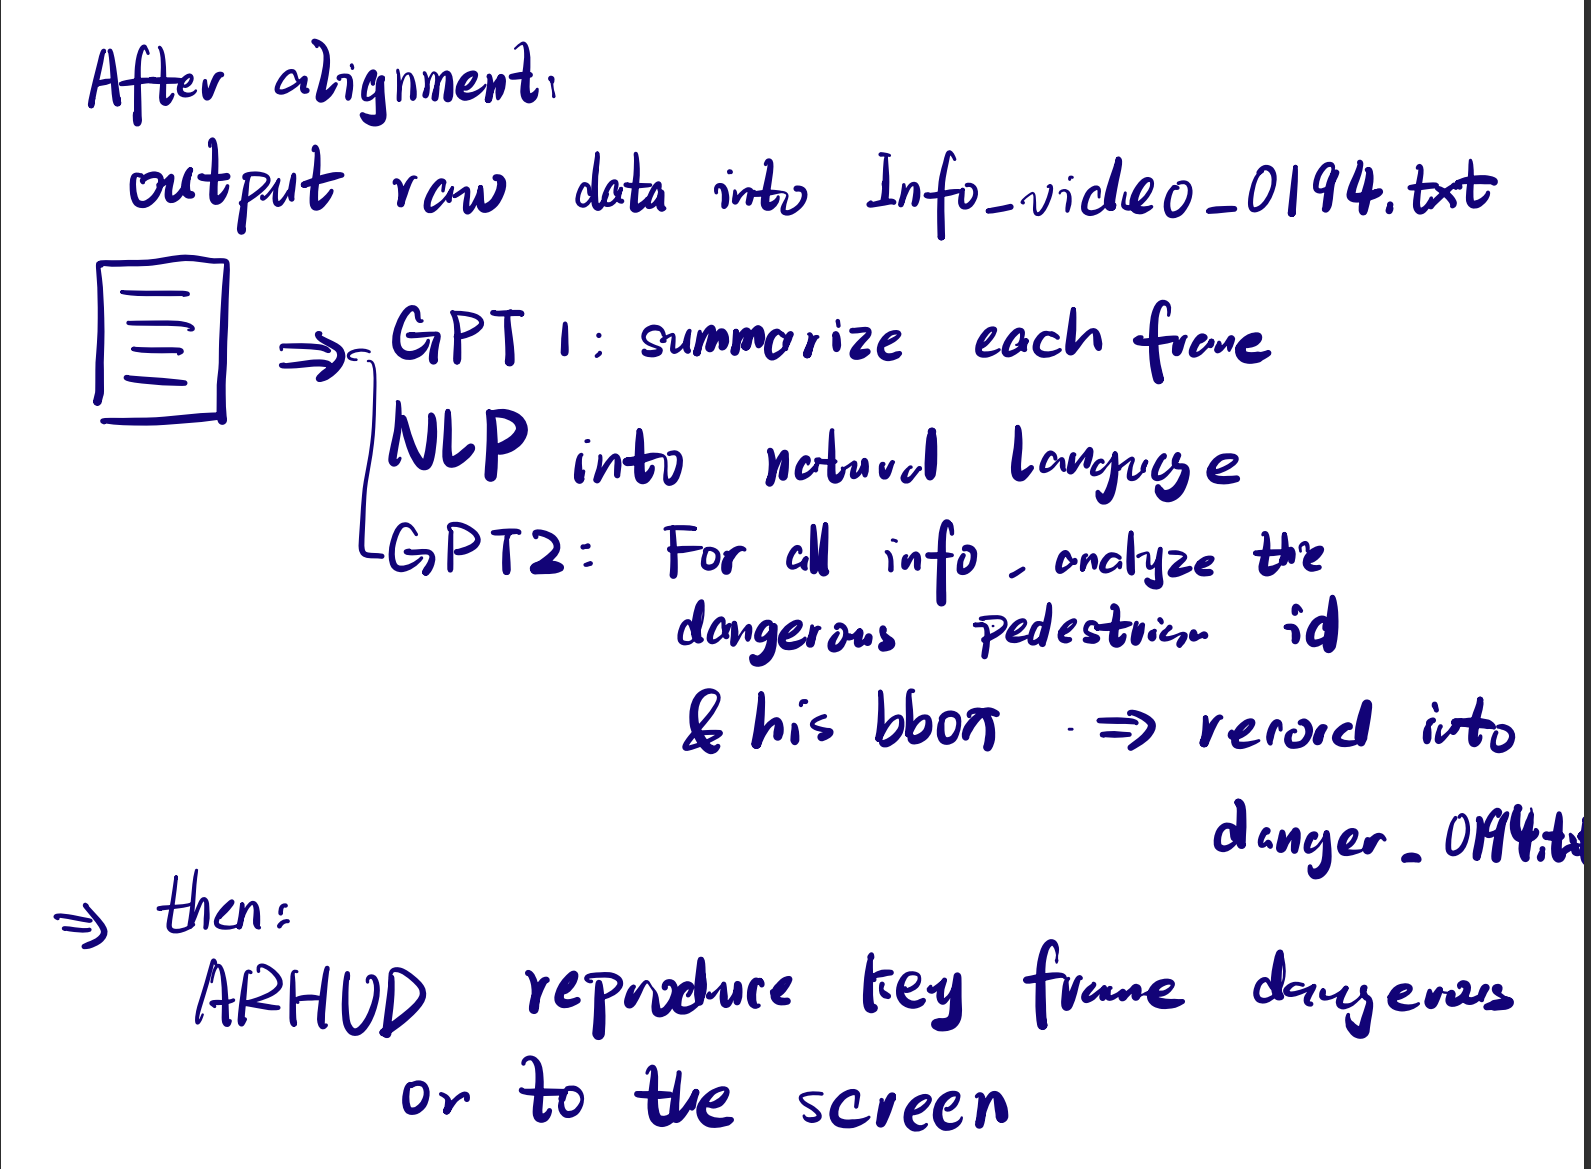 After alignment:
output raw data into Info_video_0194.txt
⇒ GPT 1: summarize each frame
NLP into natural language
GPT2: For all info, analyze the
dangerous pedestrian id
& his bbox ⇒ record into
danger_0194.txt
⇒ then:
ARHUD reproduce key frame dangerous
or to the screen